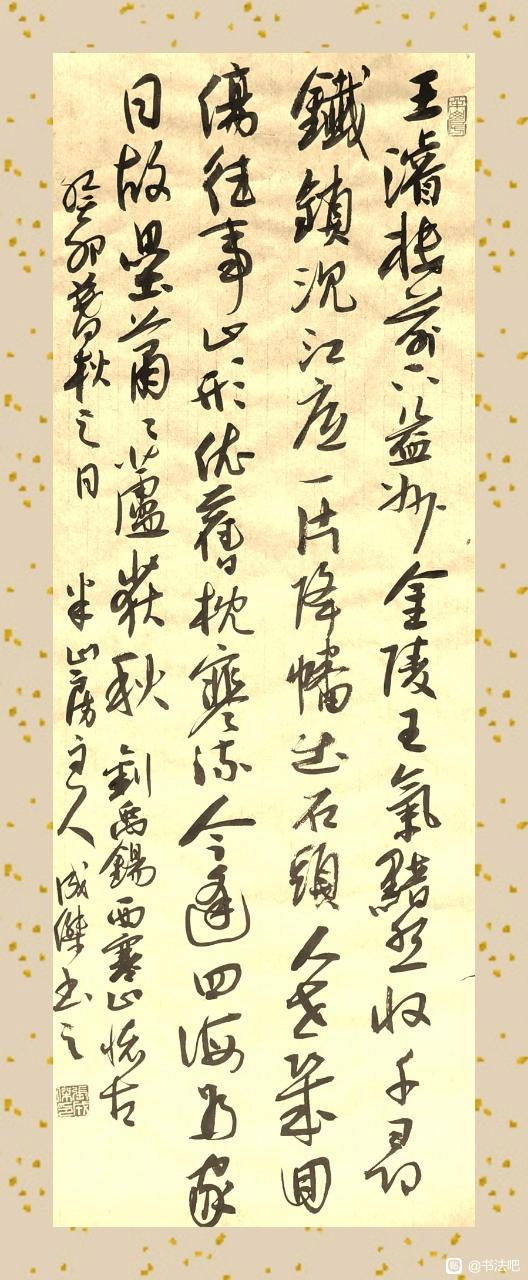 王濬楼船下益州金陵王氣黯然收千尋
鐵鎖沉江底一片降幡出石頭人世幾回
傷往事山形依舊枕寒流今逢四海為家
日故壘蕭々蘆荻秋 劉禹錫西塞山懷古
癸卯暮秋之日 半山房主人 成傑书之
張成傑印
@书法吧